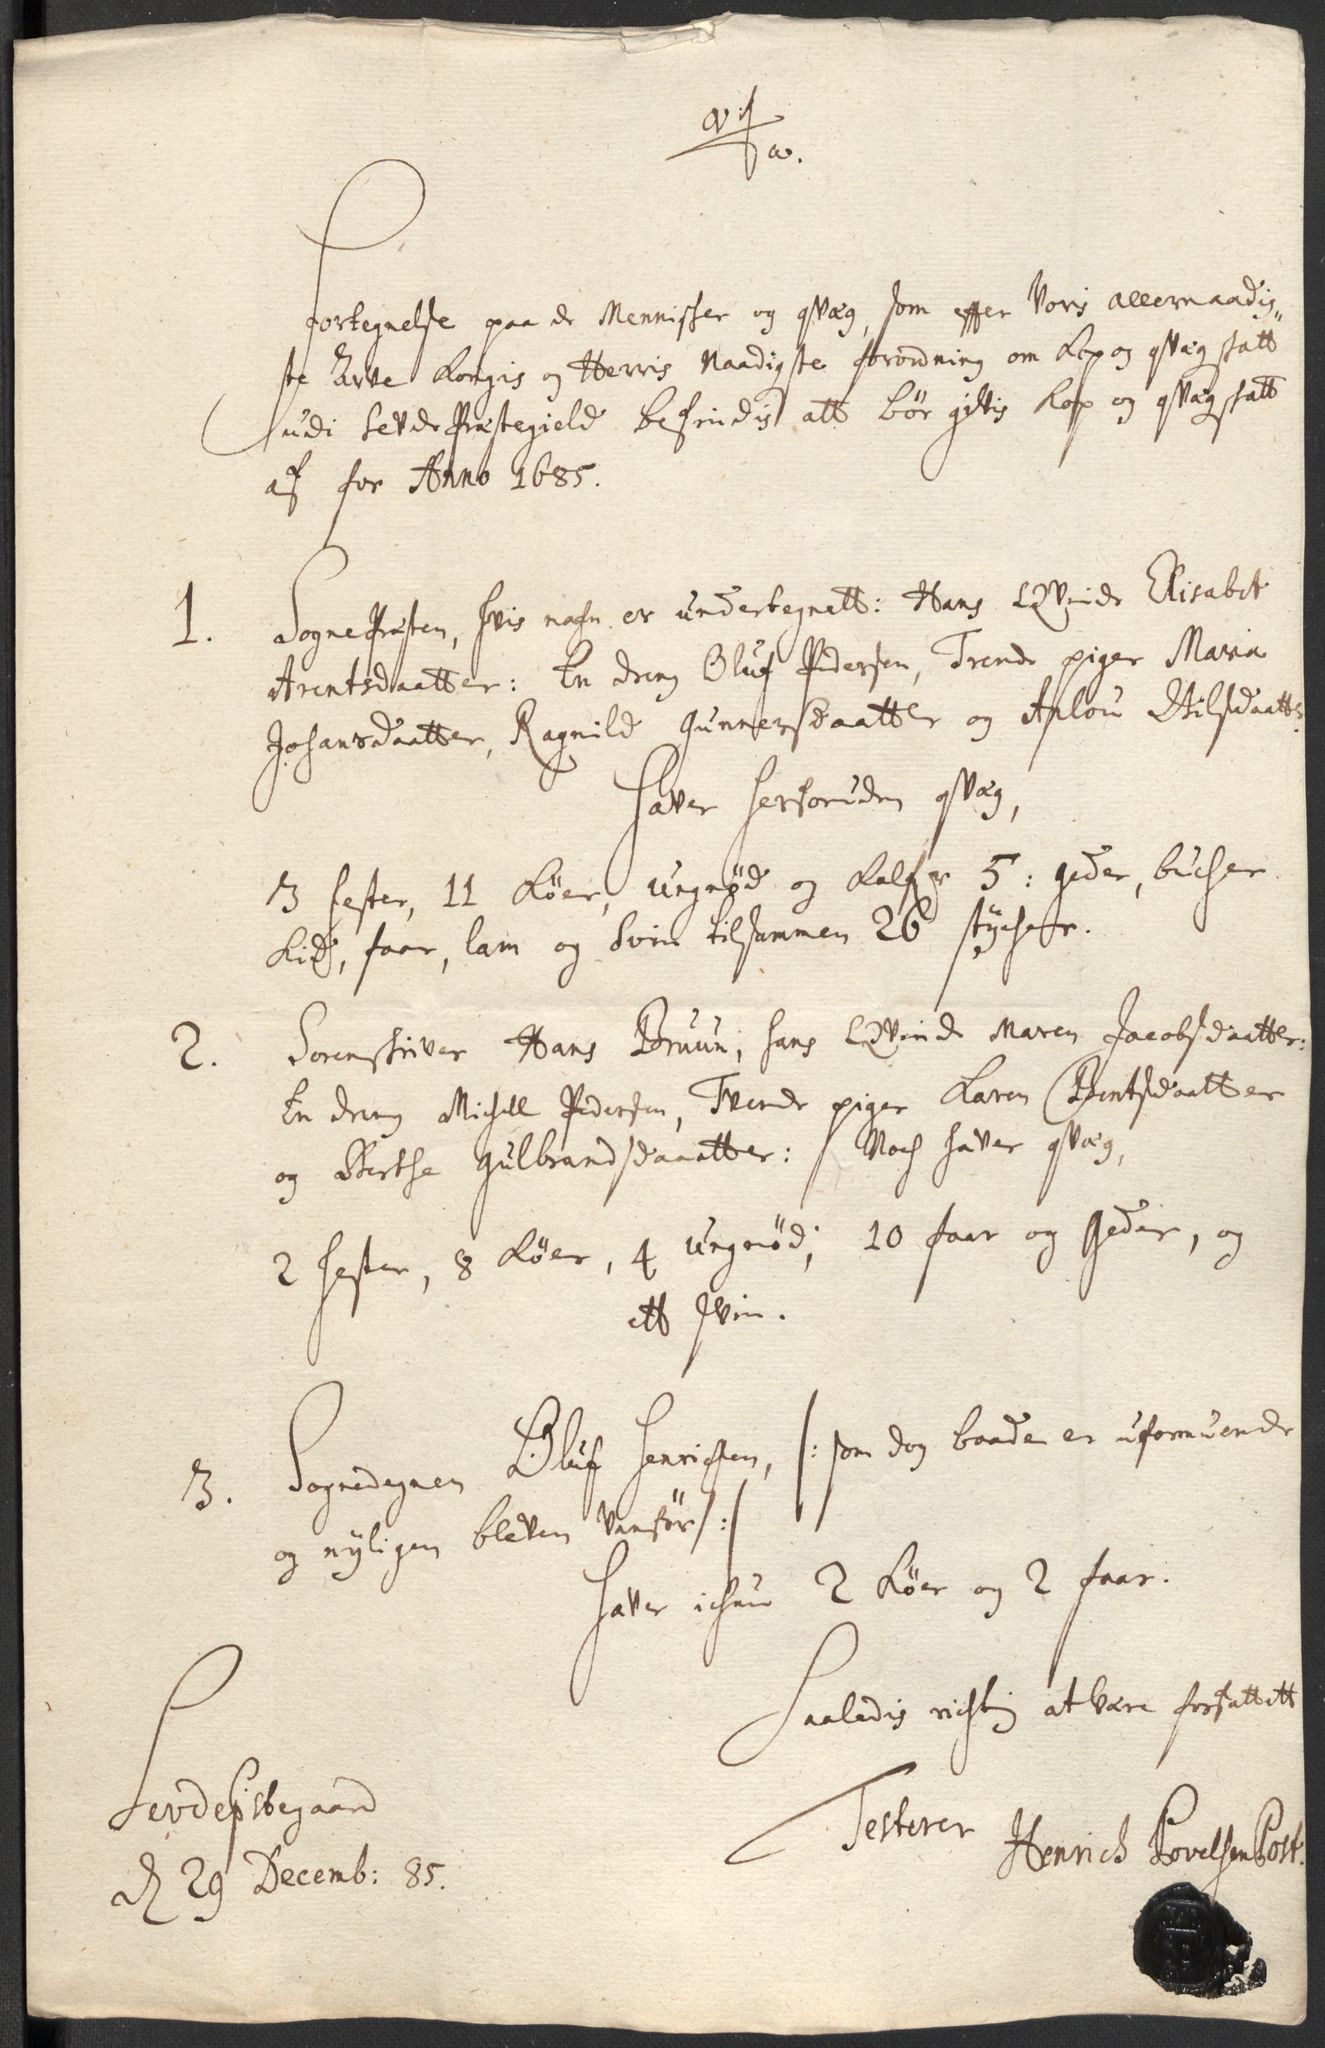 Fortegnelse paa de Mennisker og qvæg, som effter Voris allernaadig„
ste Arve Kongis og Herris Naadigste forordning om Kop og qvæg skatt
udi Sevde Præstegield befindis att bør givis Kop og qvæg skatt
af for Anno 1685.
1. Sognepræsten, hvis nafn er undertegnett: Hans Qvinde Elisabet
Arentsdaatter: En dreng Oluf Pedersen, Trende piger Maria
Johansdaatter, Ragnild Gunnersdaatter og Aslou Nilsdaatter.
Haver herforuden qvæg,
3 hester, 11 Köer, ungnöd og Kalfver 5: geder, bucher
Kid, faar, lam og Svin tilsammen 26 stÿcher.
2. Sorenskriver Hans Bruun, hans Qvinde Maren Jacobsdaatter:
En dreng Michell Pedersen, Tvende piger Karen Bentsdaatter
og Berthe Gulbrandsdaaatter: Noch haver qvæg,
2 hester, 8 Köer, 4 ungnöd, 10 faar og geder, og
ett svin.
3. Sognedegnen Oluf Henrichsen, /: som dog baade er uformuende
og nÿligen bleven vanför :/
Haver ichun 2 Köer og 2 faar.
Saaledis richtig at være forfattett
Testerer Henrich Povelsen Post.
Sevde Pstegaard
d 29 Decemb: 85.